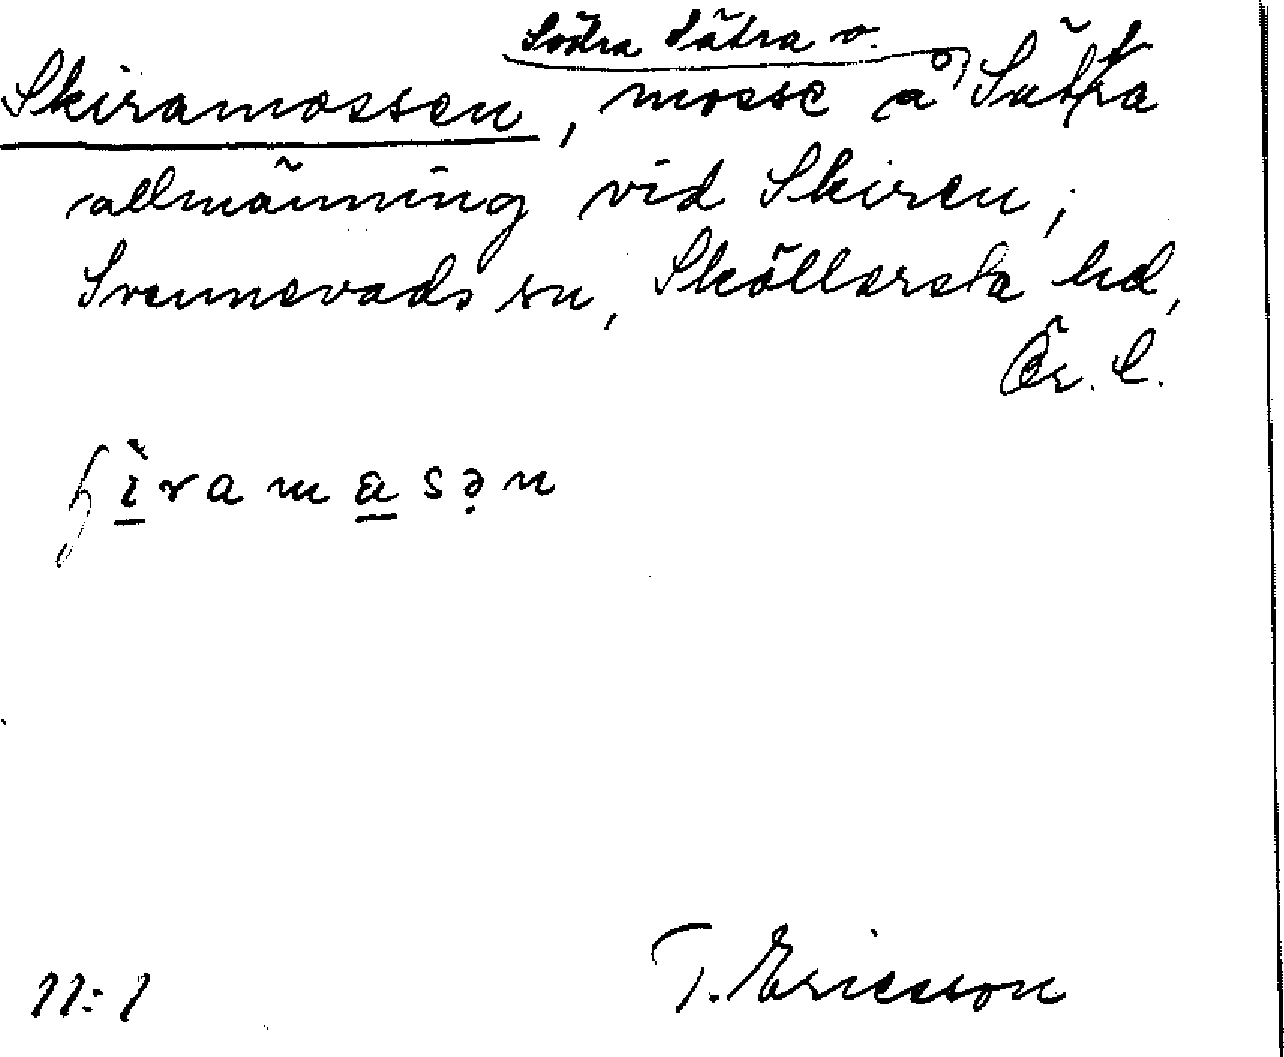 Södra Sätra o.
Skiramossen, mosse å Sätra
allmänning vid Skiren,
Svennevads sn, Sköllersta hd,
Ör. l.
ɧìramasən
11:1
T. Ericsson